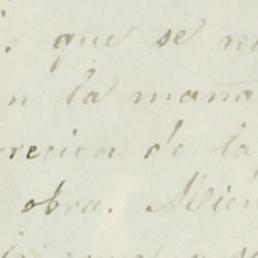 que se
la maña
recien de la
obra. Mien